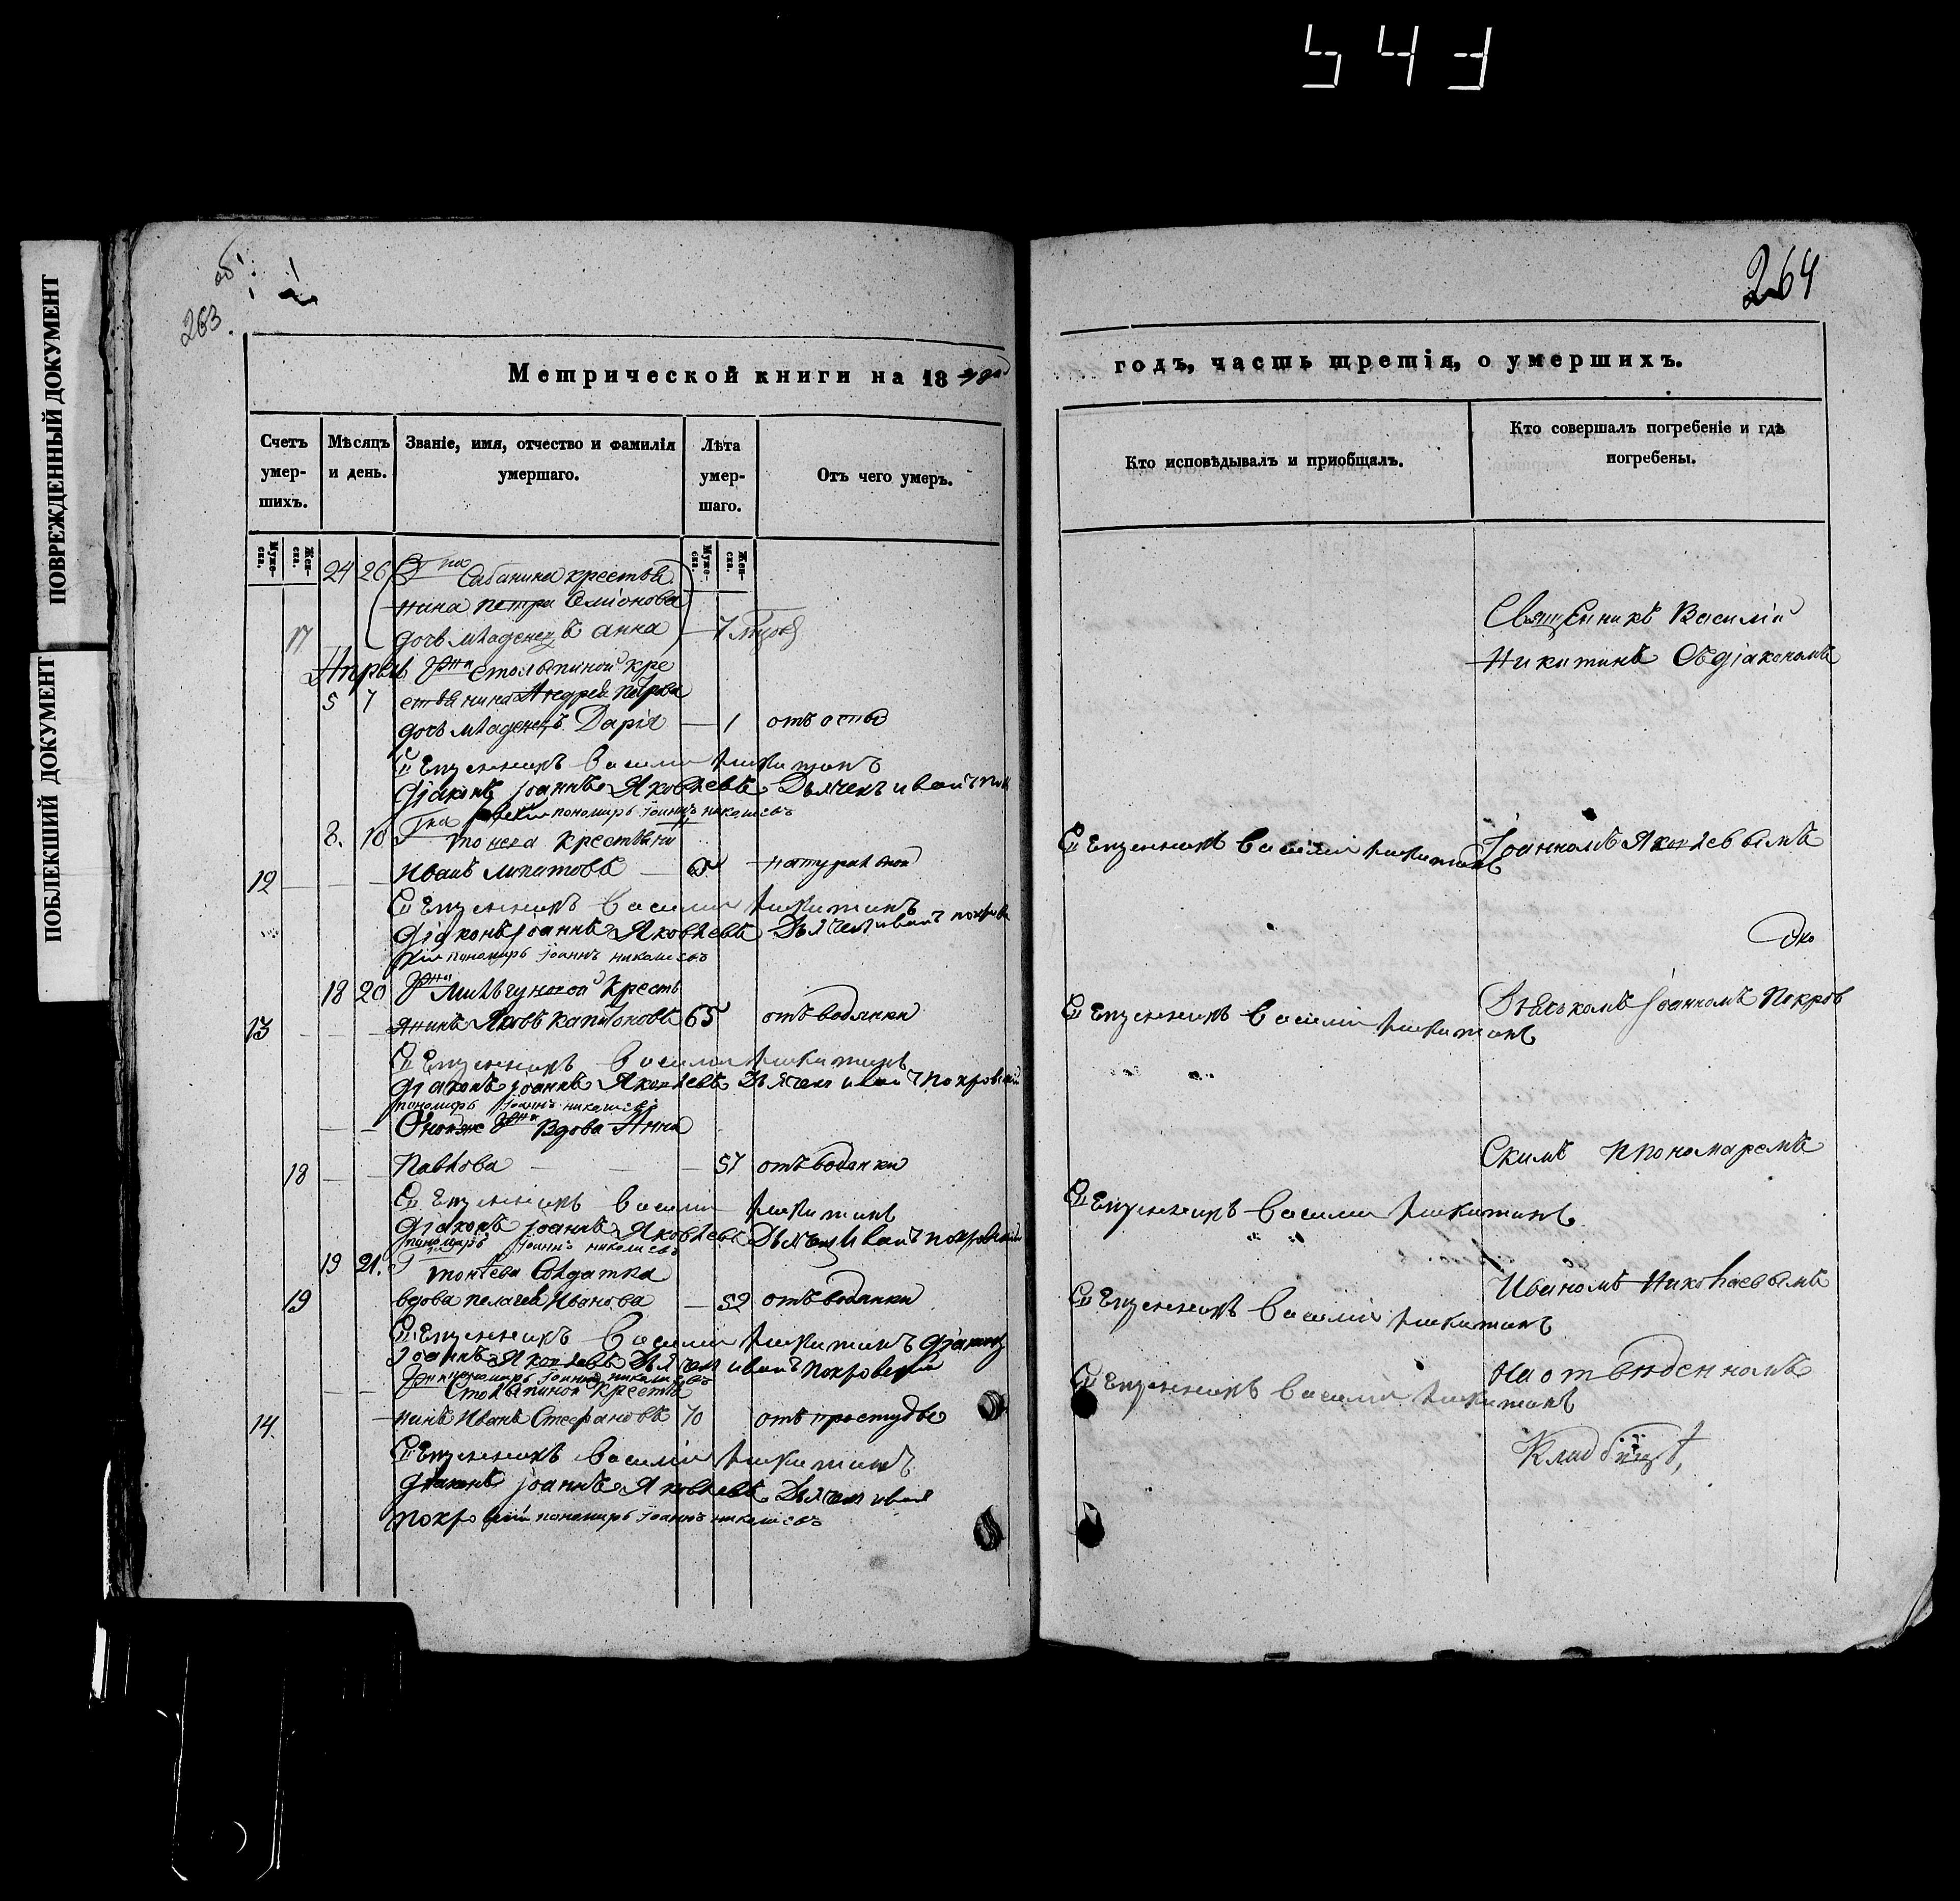 543
ПОВРЕЖДЕННЫЙ ДОКУМЕНТ
ПОБЛЕКШИЙ ДОКУМЕНТ
263
об
264
Метрической книги на 18
годъ, часть третія, о умершихъ.
Счетъ умер-шихъ.
Мѣсяцъ и день.
Званіе, имя, отчество и фамилія умершаго.
Лѣта умер-шаго.
Отъ чего умеръ.
Кто исповѣдывалъ и пріобщалъ.
Кто совершалъ погребеніе и гдѣ погребены.
Муже-ска.
Жен-ска.
Муже-ска.
Жен-ска.
24 26 Сабанина крестья
нина петра Семіонова
17 дочь младенецъ анна — 7
Апрель Гжи столыпиной кре
5 7 стьянина Андрея петрова
дочь младенецъ Дарія — 1 отъ оспы
Священникъ Василій Никитинъ
діаконъ іоаннъ Яковлевъ Дьячекъ иванъ пок
ровскій пономарь іоаннъ николаевъ
8. 10 Гна крестьяни
12 — — — Иванъ липатовъ — натуральной
Священникъ Василій Никитинъ
діаконъ іоаннъ Яковлевъ Дьячекъ иванъ покров
скій пономарь іоаннъ николаевъ
18 20 Гжи Мильгуновой Кресть
13 — — — янинъ Яковъ капитоновъ 65 отъ водянки
Священникъ Василій Никитинъ
діаконъ іоаннъ Яковлевъ Дьячекъ иванъ покровскій
пономарь іоаннъ николаевъ
— — Оной же Гжи Вдова Анна
18 — — Павлова — — — 57 отъ водянки
Священникъ Василій Никитинъ
діаконъ іоаннъ Яковлевъ Дьячекъ Иванъ покровскій
пономарь іоаннъ николаевъ
19 21. Солдатка
19 вдова пелагея Иванова — 52 отъ водянки
Священникъ Василій Никитинъ діаконъ
іоаннъ Яковлевъ Дьячекъ иванъ покровскій
пономарь іоаннъ николаевъ
— — Гжи Столыпиной Крестья
14. нинъ Иванъ Стефановъ 70 отъ простуды
Священникъ Василій Никитинъ
діаконъ іоаннъ Яковлевъ Дьячекъ иванъ
покровскій пономарь іоаннъ николаевъ
Священникъ Василій
Никитинъ Съ діакономъ
Священникъ Василій Никитинъ
Іоанномъ Яковлевымъ
Священникъ Василій Никитинъ
Дьячкомъ іоанномъ Покров
Скимъ и пономаремъ
Священникъ Василій Никитинъ
Иваномъ Николаевымъ
Священникъ Василій Никитинъ
На отведенномъ
Священникъ Василій Никитинъ
Кладбищѣ,